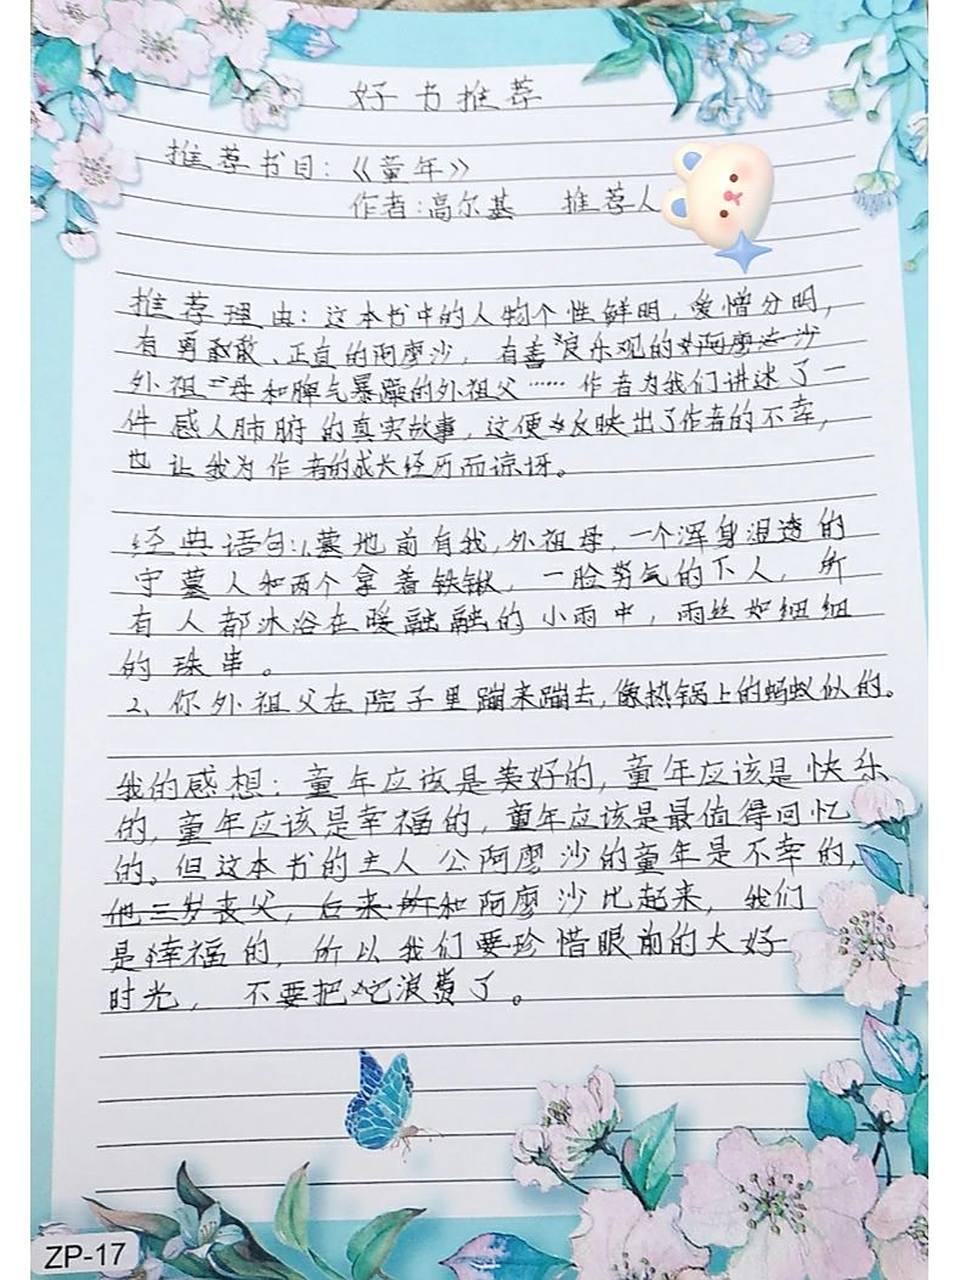 好书推荐
推荐书目:《童年》
作者:高尔基 推荐人
推荐理由:这本书中的人物个性鲜明,爱憎分明,
有勇敢、正直的阿廖沙,有善良乐观的
外祖母和脾气暴躁的外祖父……作者为我们讲述了一
件感人肺腑的真实故事,这便反映出了作者的不幸,
也让我为作者的成长经历而谅讶。
经典语句:1、墓地前有我,外祖母,一个浑身湿透的
守墓人和两个拿着铁锹,一脸穷气的下人,所
有人都沐浴在暖融融的小雨中,雨丝如细细
的珠串。
2、你外祖父在院子里蹦来蹦去,像热锅上的蚂蚁似的。
我的感想:童年应该是美好的,童年应该是快乐
的,童年应该是幸福的,童年应该是最值得回忆
的。但这本书的主人公阿廖沙的童年是不幸的,
他三岁丧父,后来 和阿廖沙比起来,我们
是幸福的,所以我们要珍惜眼前的大好
时光,不要把它浪费了。
ZP-17